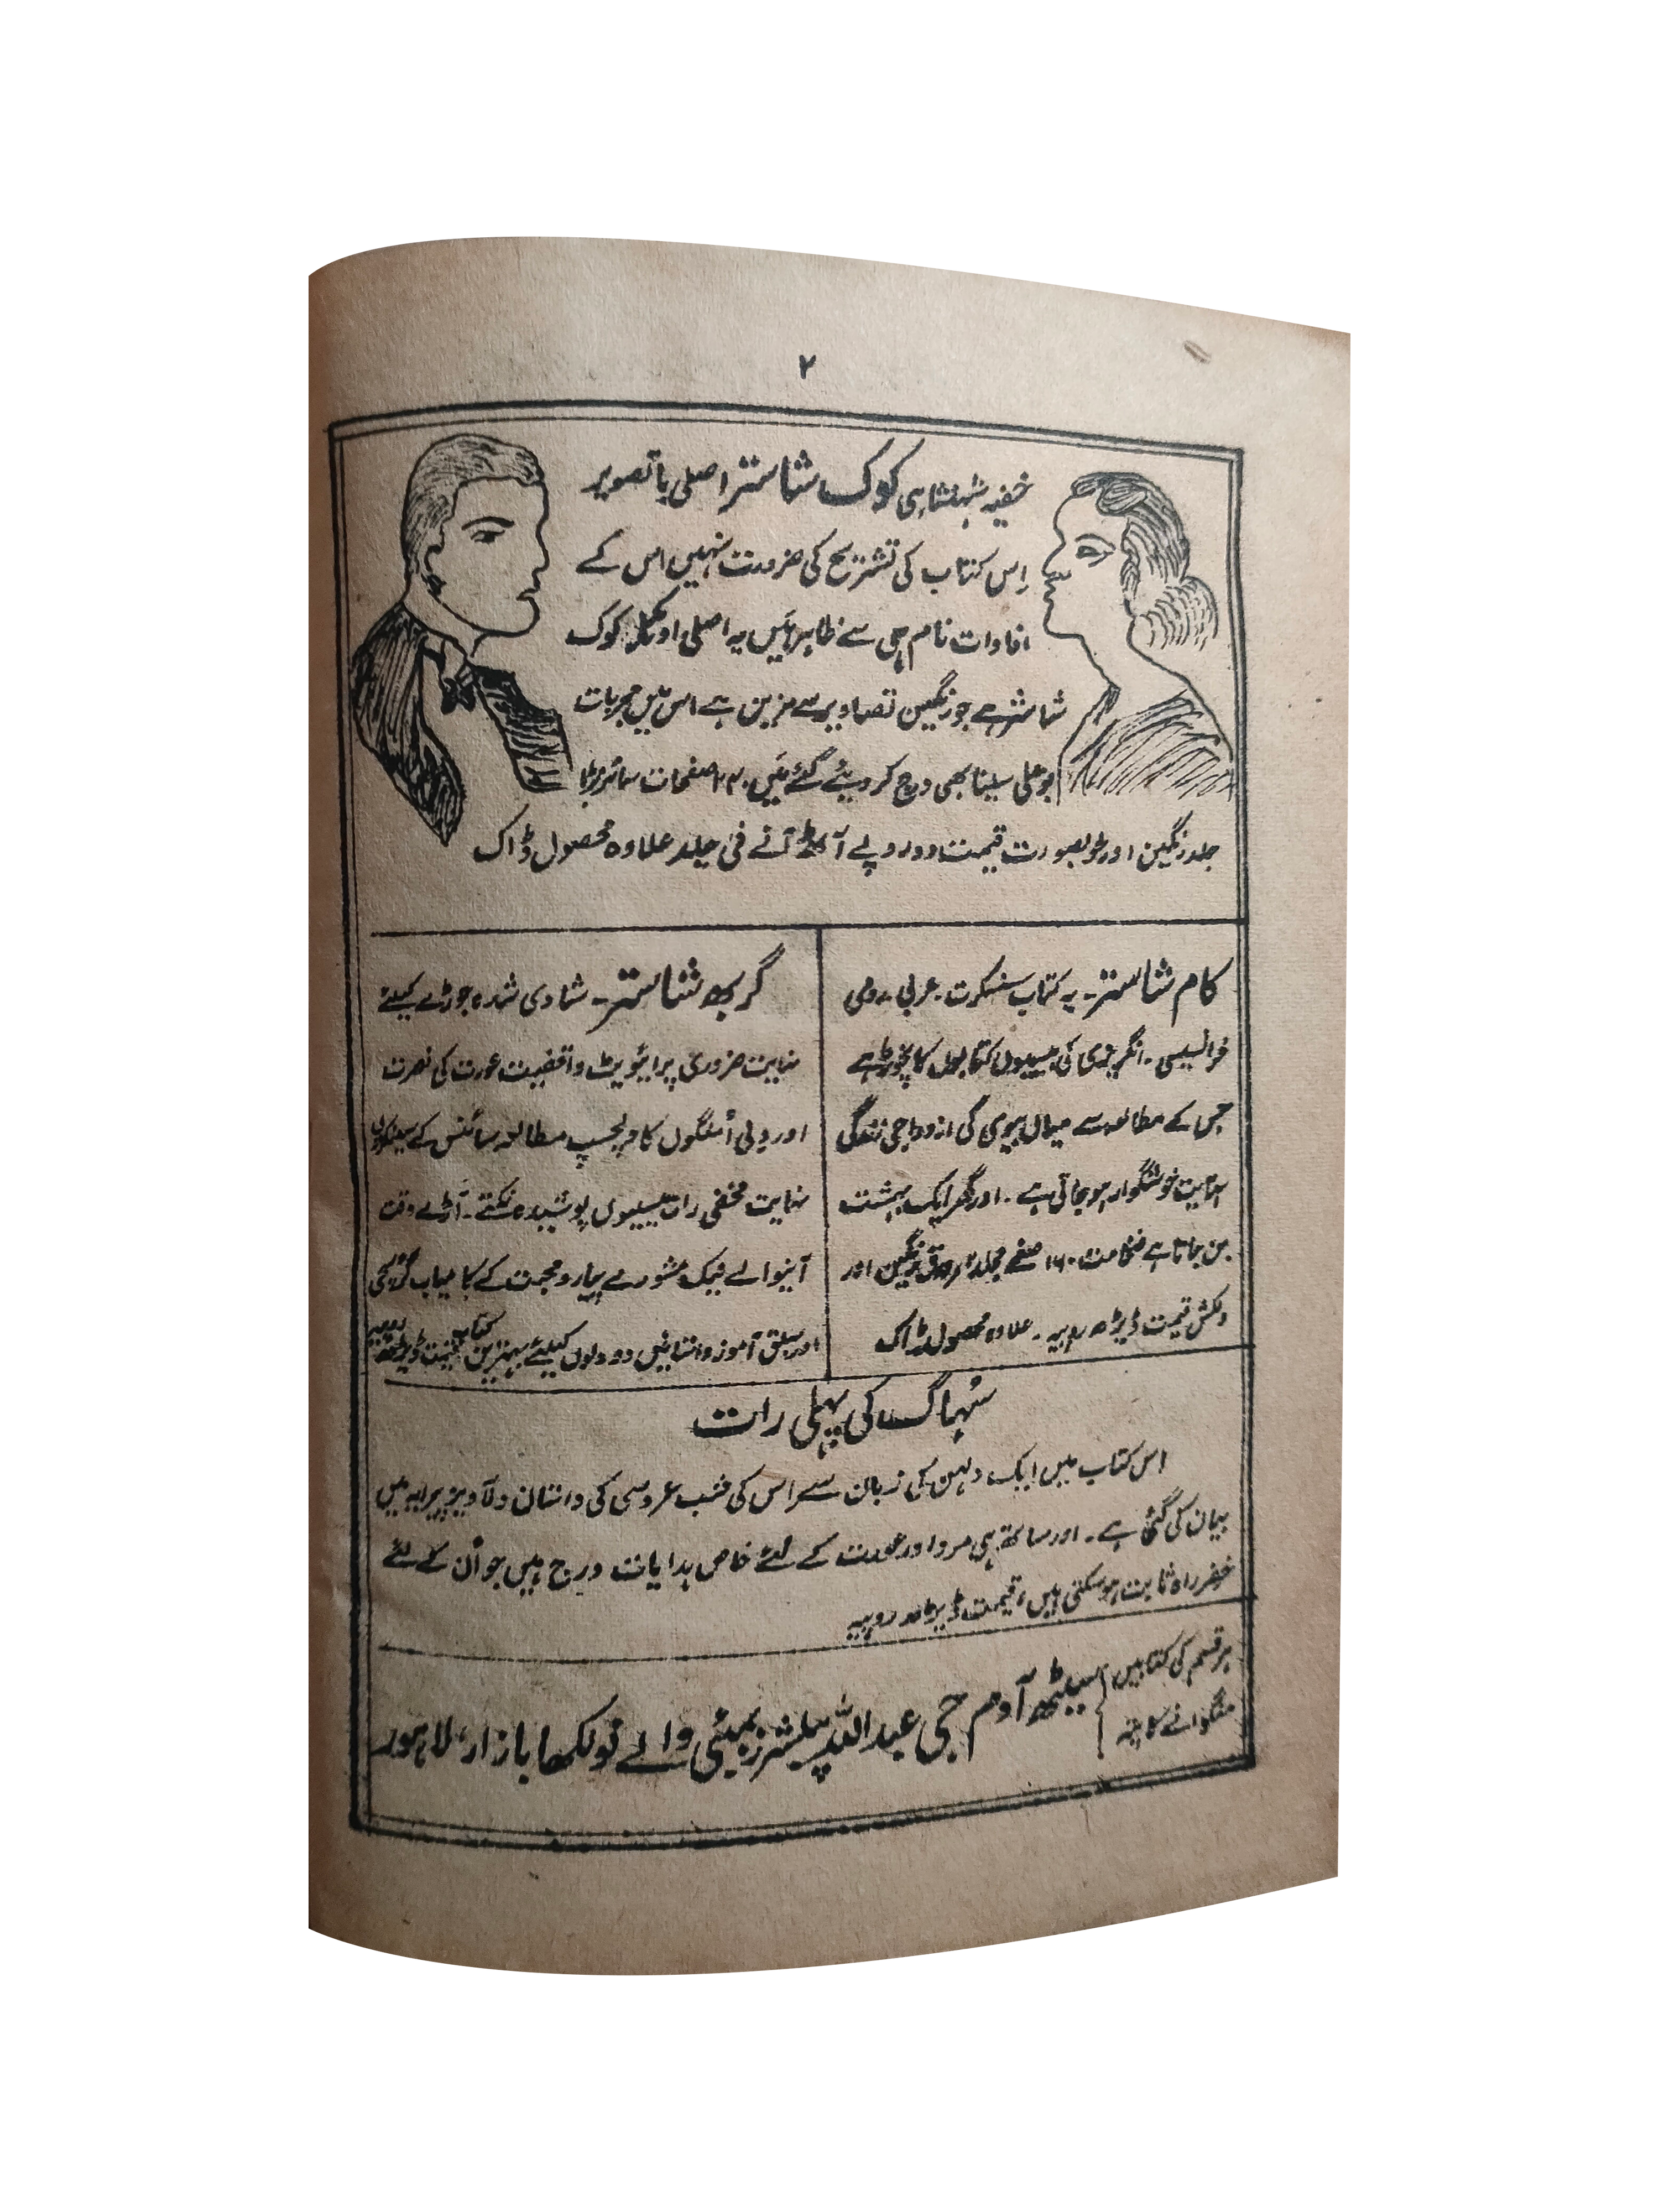 ۲
خفیہ شہنشاہی کوک شاستر اصلی باتصویر
اِس کتاب کی تشریح کی ضرورت نہیں اس کے
افادات نام ہی سے ظاہر ہیں یہ اصلی اور مکمل کوک
شاستر ہے جو رنگین تصاویر سے مزین ہے اس میں مجربات
بوعلی سینا بھی درج کر دیئے گئے ہیں۔ صفحات سائز بڑا
جلد رنگین اور خوبصورت قیمت دو روپے آٹھ آنے فی جلد علاوہ محصول ڈاک
کام شاستر۔ یہ کتاب سنسکرت۔ عربی۔ رومی
فرانسیسی۔ انگریزی کی بیسیوں کتابوں کا نچوڑ ہے
جس کے مطالعہ سے میاں بیوی کی ازدواجی زندگی
نہایت خوشگوار ہو جاتی ہے۔ اور گھر ایک بہشت
بن جاتا ہے ضخامت ۱۶۰ صفحے مجلد سرورق رنگین اور
دلکش قیمت ڈیڑھ روپیہ۔ علاوہ محصول ڈاک
گربھ شاستر۔ شادی شدہ جوڑے کیلئے
نہایت ضروری پرائیویٹ واقفیت عورت کی فطرت
اور دلی اُمنگوں کا دلچسپ مطالعہ سائنس کے سینکڑوں
نہایت مخفی راز بیسیوں پوشیدہ نکتے۔ آڑے وقت
آنیوالے نیک مشورے پیار و محبت کے کامیاب گُر سچی
اور سبق آموز داستانیں دو دلوں کیلئے بہترین کتاب قیمت ڈیڑھ روپیہ
سُہاگ کی پہلی رات
اس کتاب میں ایک دلہن کی زبان سے اس کی شب عروسی کی داستان دلآویز پیرایہ میں
بیان کی گئی ہے۔ اور ساتھ ہی مرد اور عورت کے لئے خاص ہدایات درج ہیں جو اُن کے لئے
خضر راہ ثابت ہو سکتی ہیں، قیمت ڈیڑھ روپیہ
ہر قسم کی کتابیں
منگوانے کا پتہ
سیٹھ آدم جی عبداللہ پبلشرز بمبئی والے نولکھا بازار، لاہور